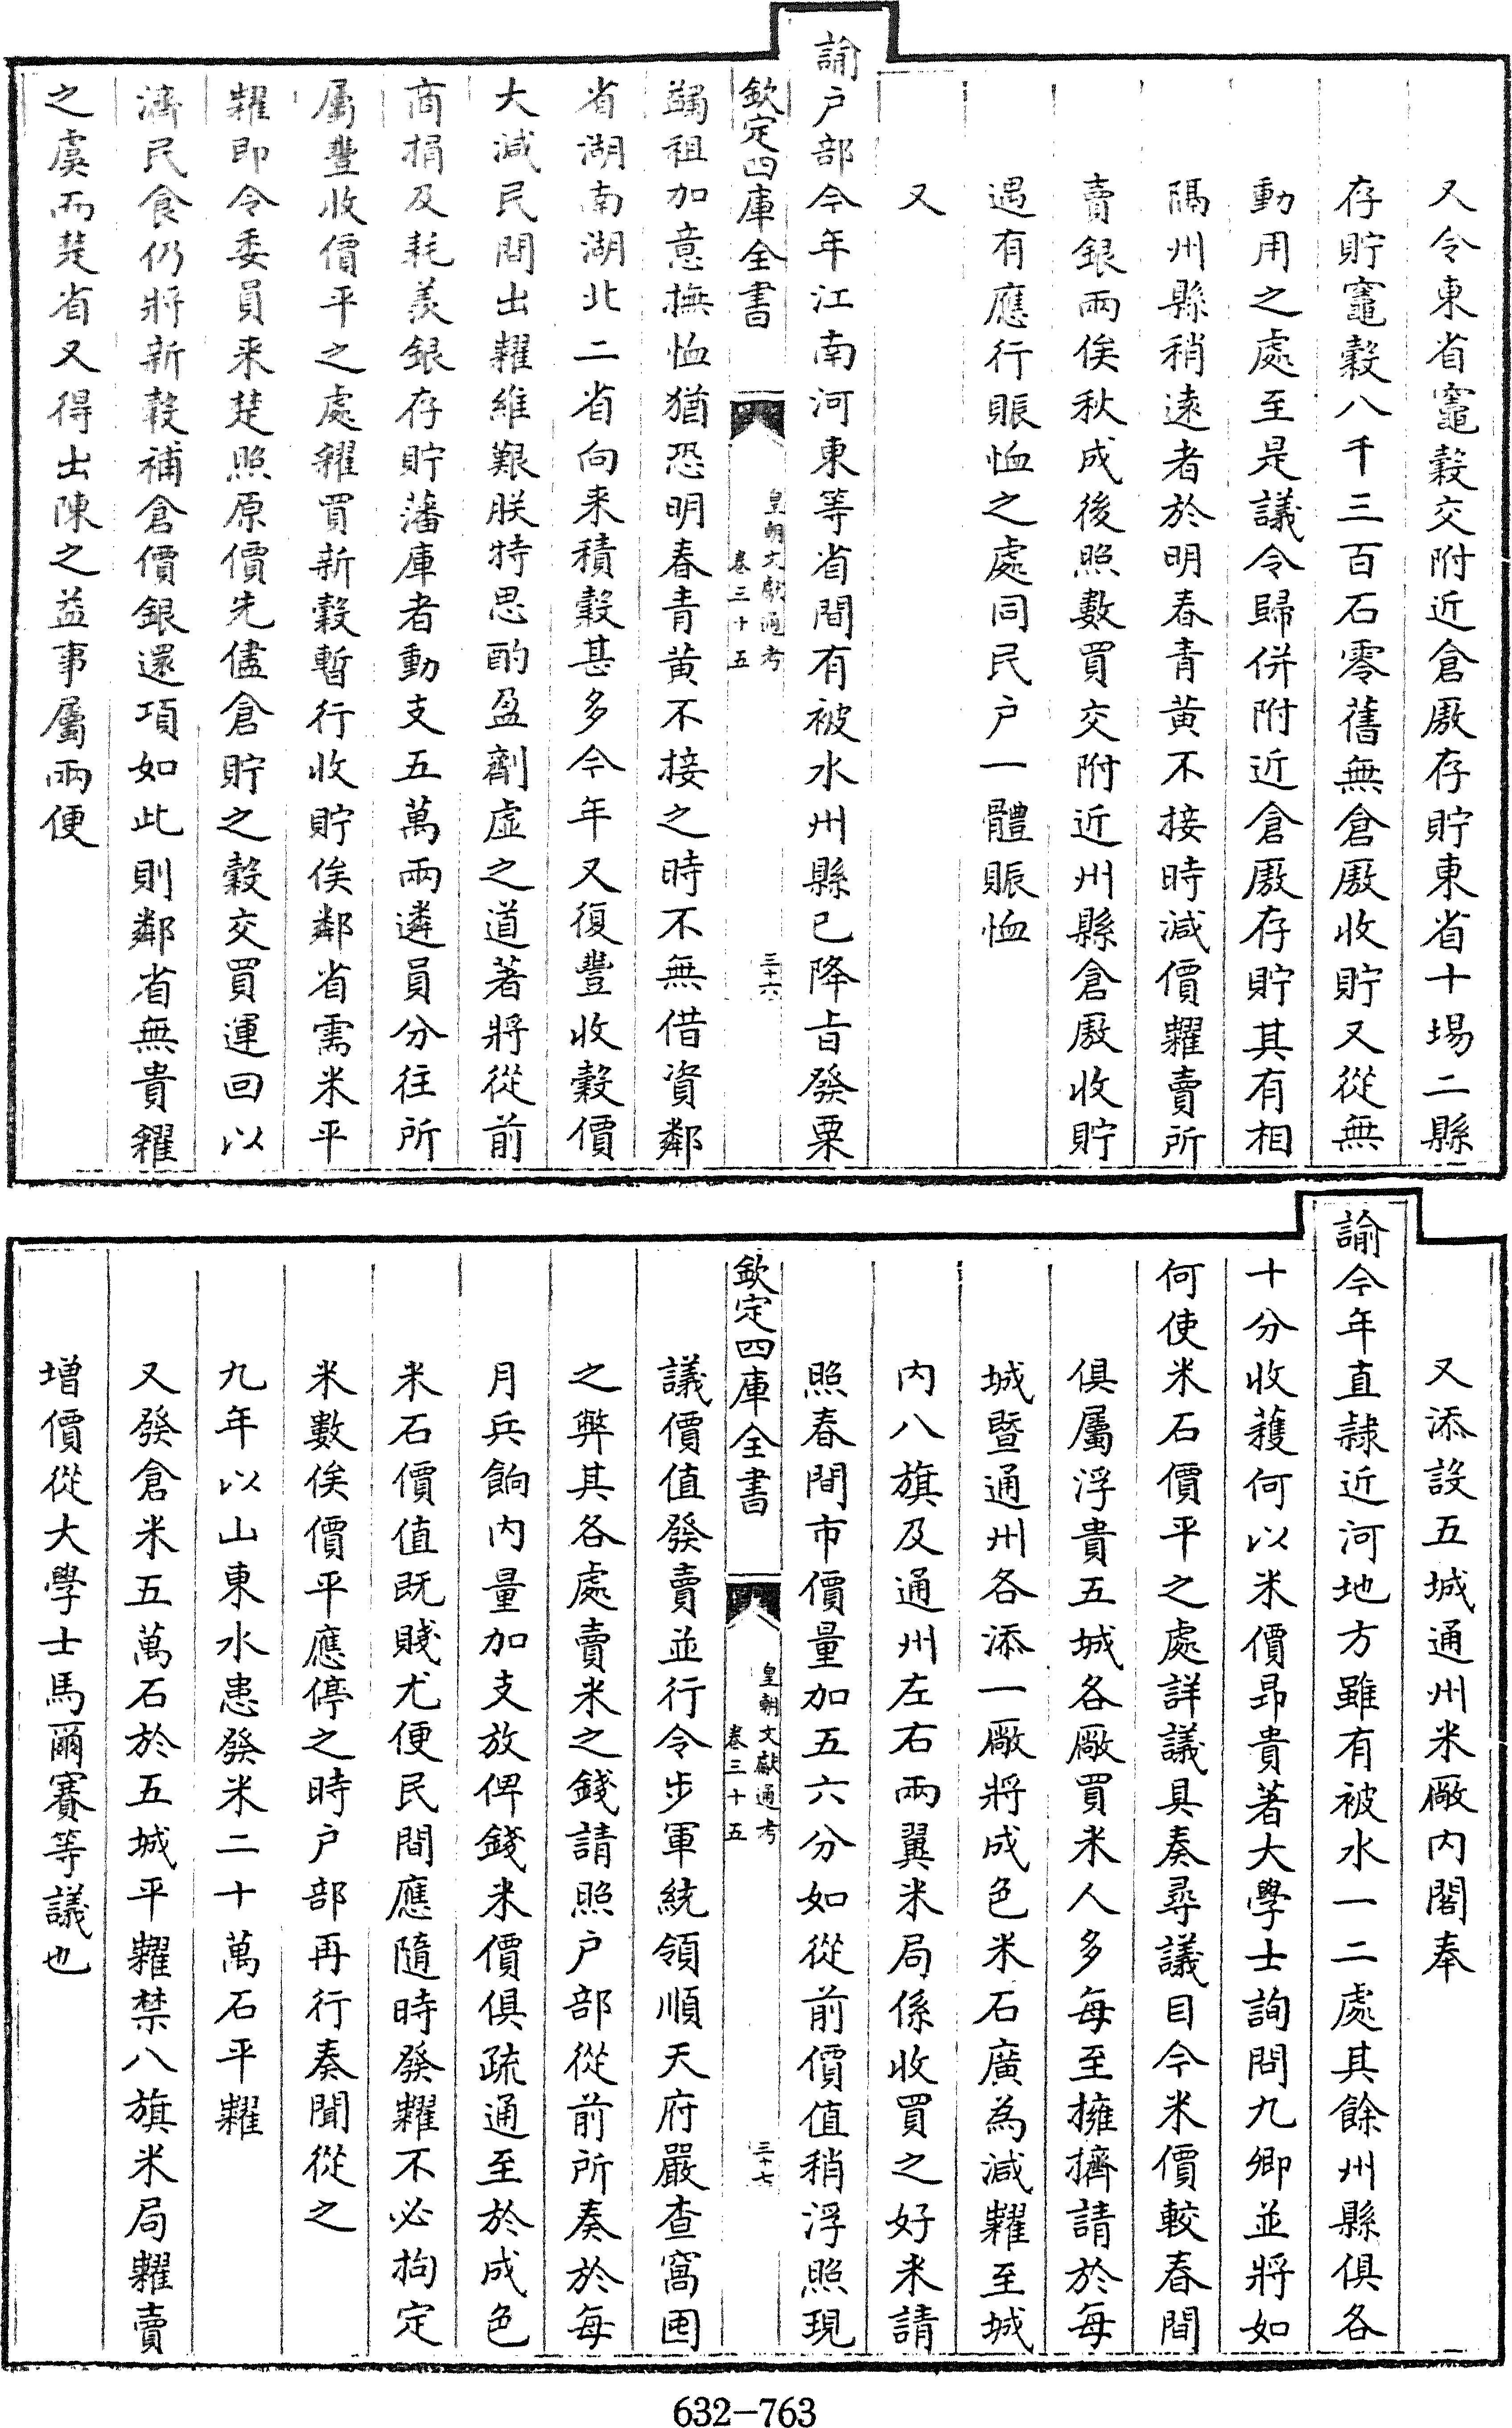 又令東省竈穀交附近倉厫存貯東省十場二縣
存貯竈穀八千三百石零舊無倉厫收貯又從無
動用之處至是議令歸併附近倉厫存貯其有相
隔州縣稍遠者於明春青黄不接時減價糶賣所
賣銀兩俟秋成後照數買交附近州縣倉厫收貯
遇有應行賑恤之處同民户一體賑恤
又
諭户部今年江南河東等省間有被水州縣已降㫖發粟
欽定四庫全書
皇朝文獻通考
卷三十五
三十六
蠲租加意撫恤猶恐明春青黄不接之時不無借資鄰
省湖南湖北二省向来積穀甚多今年又復豐收穀價
大減民間出糶維艱朕特思酌盈劑虛之道著將從前
商捐及耗羡銀存貯藩庫者動支五萬兩遴員分往所
屬豐收價平之處糴買新穀暫行收貯俟鄰省需米平
糶即令委員来楚照原價先儘倉貯之穀交買運回以
濟民食仍將新穀補倉價銀還項如此則鄰省無貴糴
之虞而楚省又得出陳之益事屬兩便
又添設五城通州米廠内閣奉
諭今年直隷近河地方雖有被水一二處其餘州縣俱各
十分收穫何以米價昂貴著大學士詢問九卿並將如
何使米石價平之處詳議具奏尋議目今米價較春間
俱屬浮貴五城各廠買米人多每至擁擠請於每
城暨通州各添一廠將成色米石廣為減糶至城
内八旗及通州左右兩翼米局係收買之好米請
照春間市價量加五六分如從前價值稍浮照現
欽定四庫全書
皇朝文獻通考
卷三十五
三十七
議價值發賣並行令步軍統領順天府嚴查窩囤
之弊其各處賣米之錢請照户部從前所奏於每
月兵餉内量加支放俾錢米價俱疏通至於成色
米石價值既賤尤便民間應隨時發糶不必拘定
米數俟價平應停之時户部再行奏聞從之
九年以山東水患發米二十萬石平糶
又發倉米五萬石於五城平糶禁八旗米局糶賣
增價從大學士馬爾賽等議也
632-763